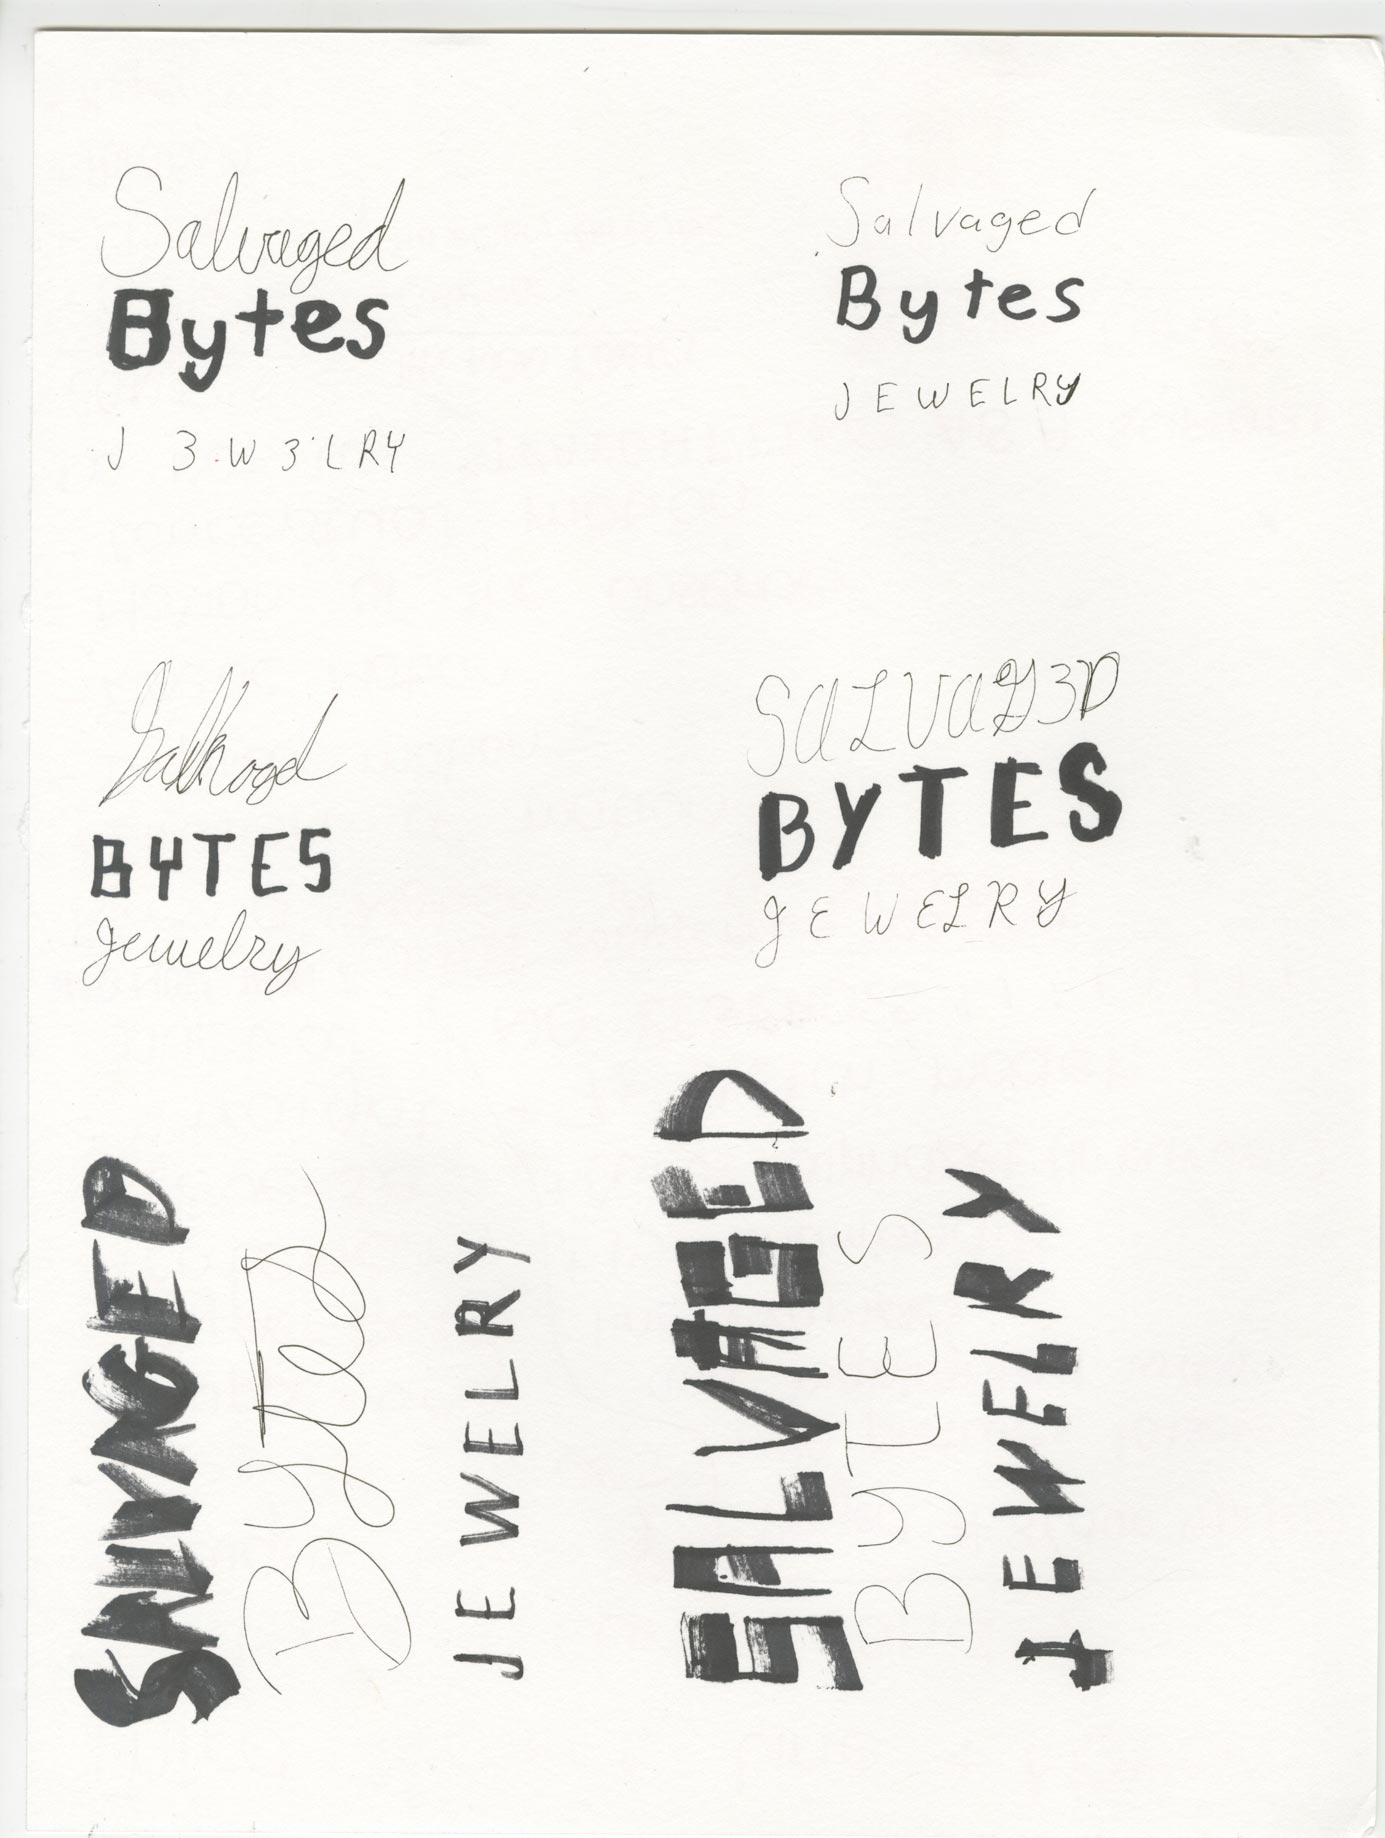 Salvaged
Bytes
J 3 W 3 L R Y
Salvaged
Bytes
JEWELRY
Salvaged
BYTES
Jewelry
SALVAG3D
BYTES
JEWELRY
SALVAGED
Bytes
JEWELRY
SALVAGED
BYTES
JEWELRY